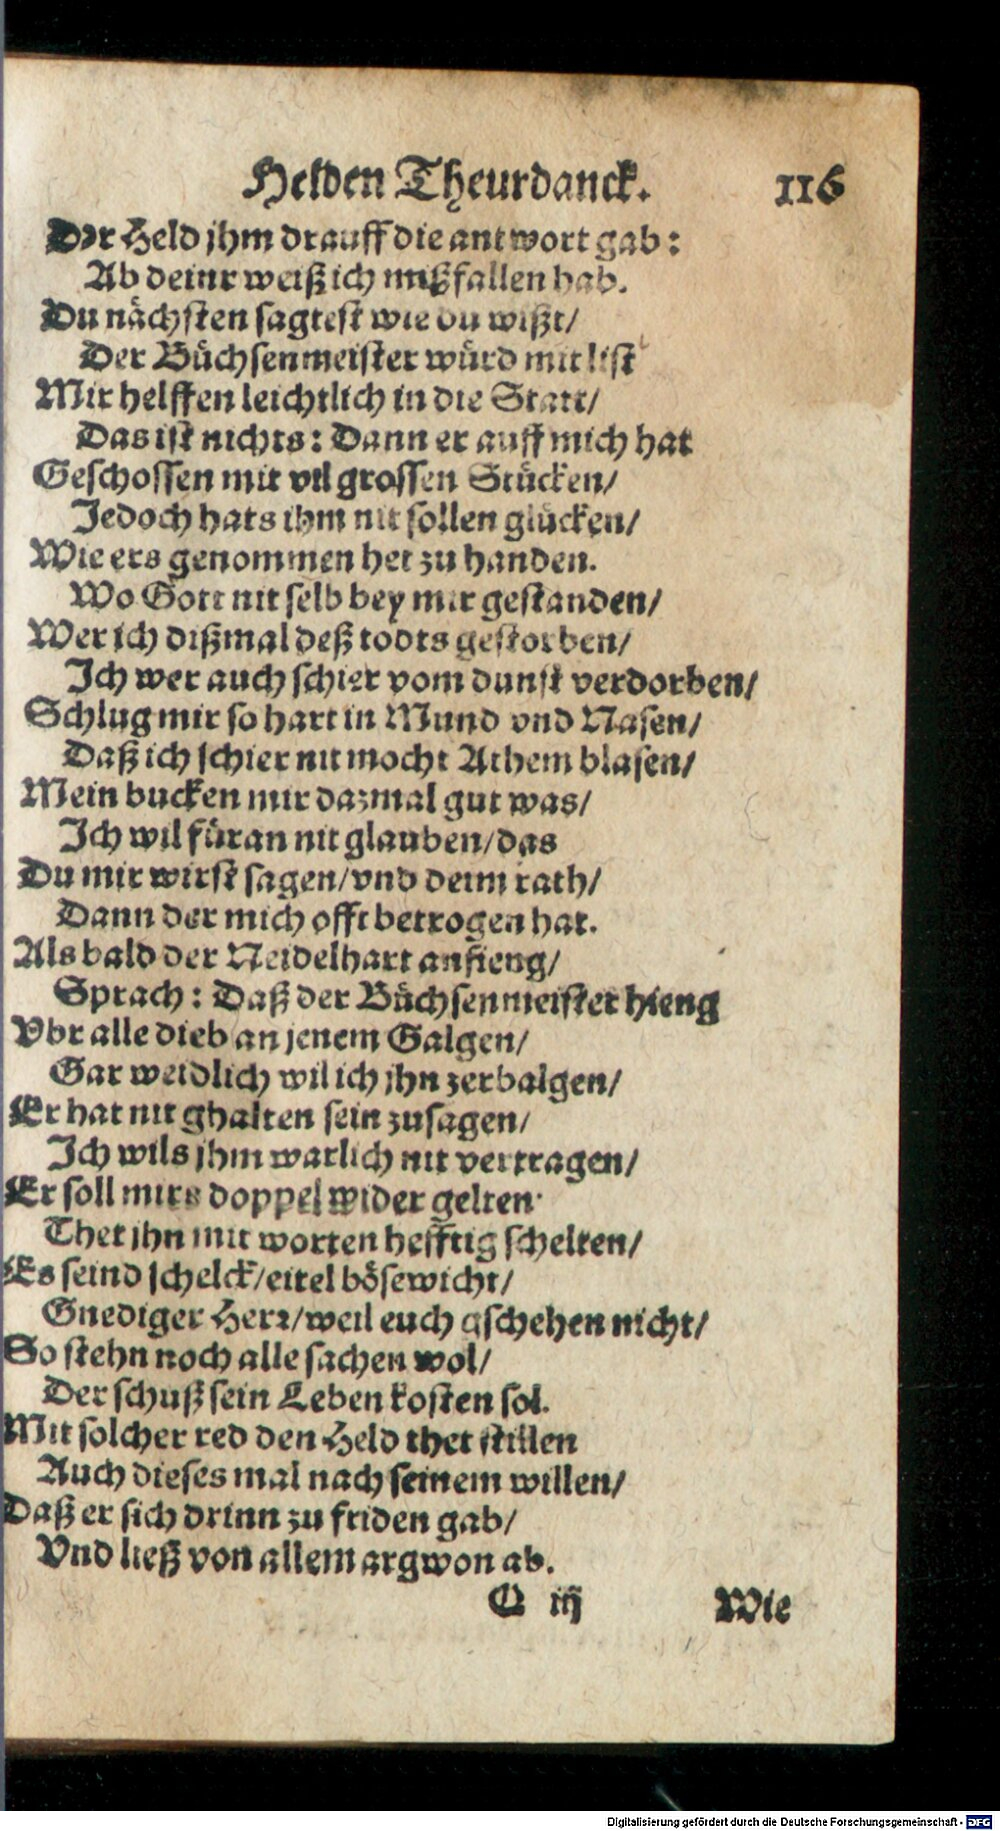 Helden Theurdanck. 116
Der Held jhm drauff die antwort gab:
Ab deinr weiß ich mißfallen hab.
Du nächsten sagtest wie du wißt/
Der Büchsenmeister würd mit list
Mir helffen leichtlich in die Statt/
Das ist nichts: Dann er auff mich hat
Geschossen mit vil grossen Stücken/
Jedoch hats ihm nit sollen glücken/
Wie ers genommen het zu handen.
Wo Gott nit selb bey mir gestanden/
Wer ich dißmal deß todts gestorben/
Ich wer auch schier vom dunst verdorben/
Schlug mir so hart in Mund vnd Nasen/
Daß ich schier nit mocht Athem blasen/
Mein bucken mir dazmal gut was/
Ich wil füran nit glauben/das
Du mir wirst sagen/vnd deim rath/
Dann der mich offt betrogen hat.
Als bald der Neidelhart anfieng/
Sprach: Daß der Büchsenmeister hieng
Vbr alle dieb an jenem Galgen/
Gar weidlich wil ich jhn zerbalgen/
Er hat nit ghalten sein zusagen/
Ich wils jhm warlich nit vertragen/
Er soll mirs doppel wider gelten.
Thet jhn mit worten hefftig schelten/
Es seind schelck/eitel bösewicht/
Gnediger Herr/weil euch gschehen nicht/
So stehn noch alle sachen wol/
Der schuß sein Leben kosten sol.
Mit solcher red den Held thet stillen
Auch dieses mal nach seinem willen/
Daß er sich drinn zu friden gab/
Vnd ließ von allem argwon ab.
Q iij Wie
Digitalisierung gefördert durch die Deutsche Forschungsgemeinschaft - DFG